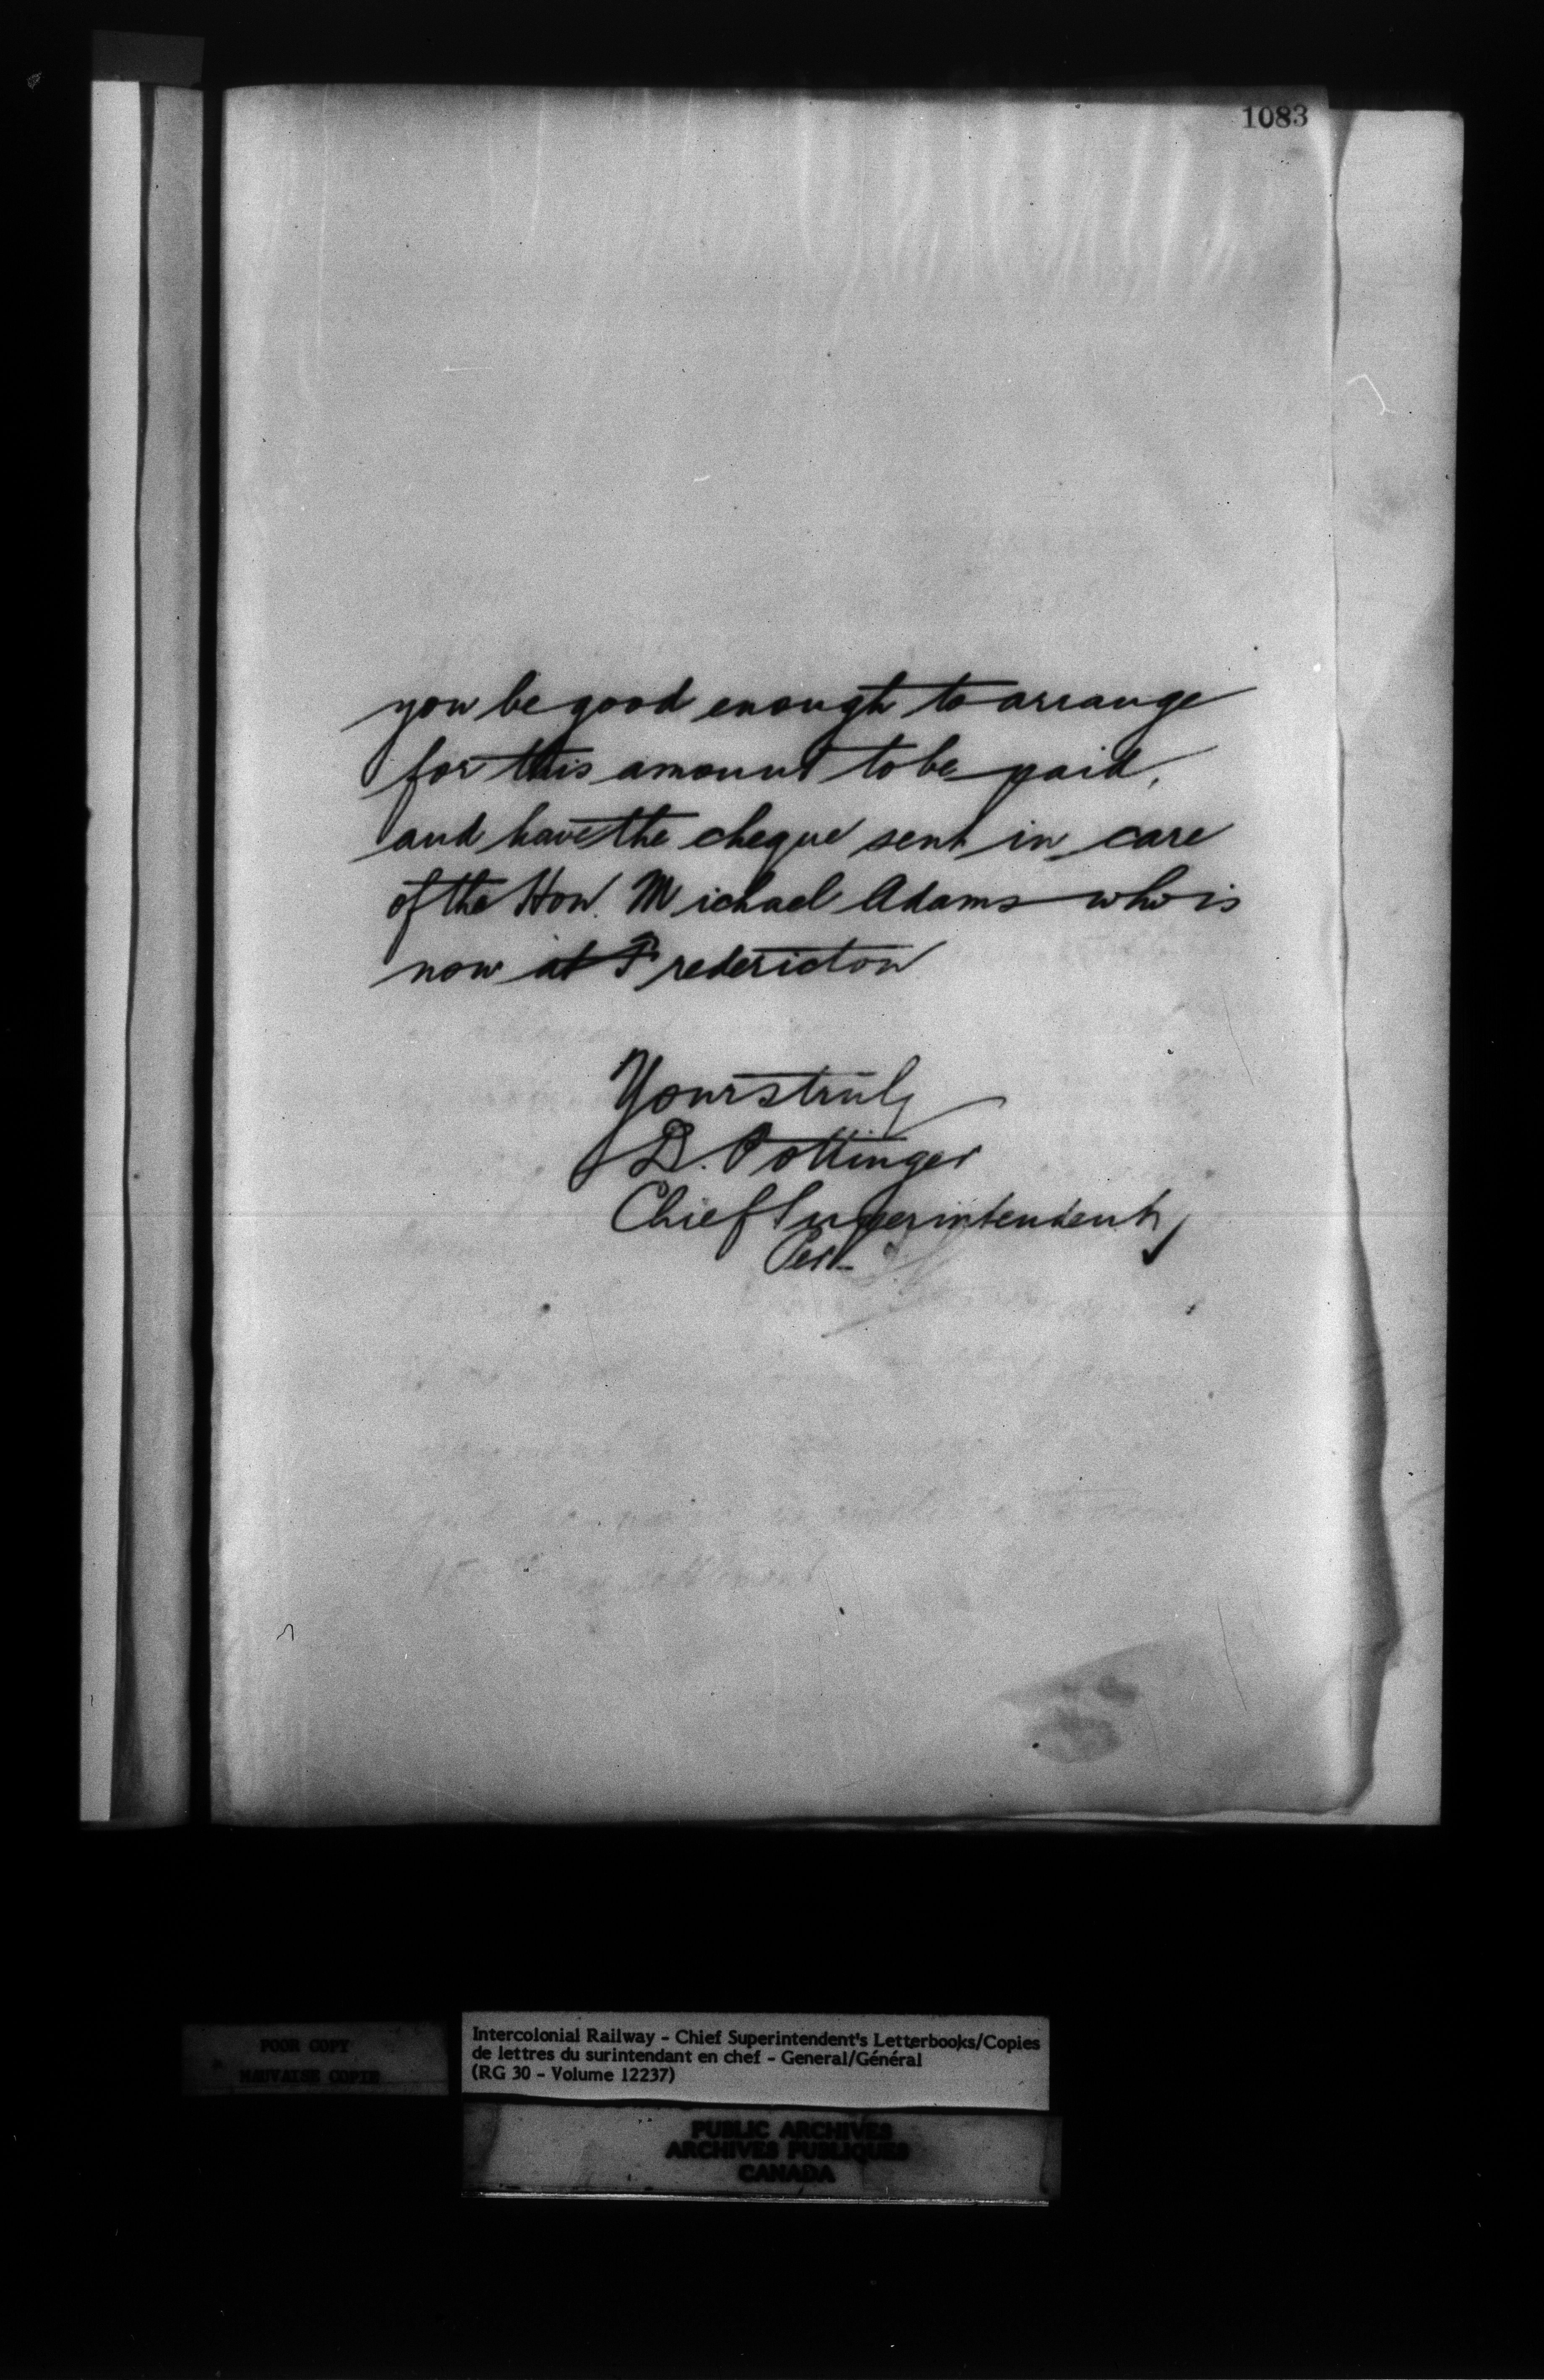 1083
you be good enough to arrange
for this amount to be paid,
and have the cheque sent in care
of the Hon. Michael Adams who is
now at Fredericton
Yours truly
D. Pottinger
Chief Superintendent,
Per
POOR COPY
MAUVAISE COPIE
Intercolonial Railway - Chief Superintendent's Letterbooks/Copies
de lettres du surintendant en chef - General/Général
(RG 30 - Volume 12237)
PUBLIC ARCHIVES
ARCHIVES PUBLIQUES
CANADA